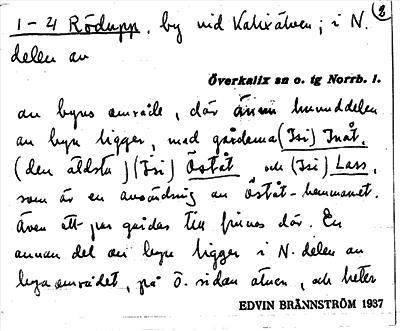 1-4 Rödupp, by vid Kalixälven; i N. (2
delen av
Överkalix sn o. tg Norrb. l.
av byns område, där även huvuddelen
av byn ligger, med gårdarna (Isi) Inåt,
(den äldsta) (Isi) Öståt och (Isi) Lass,
som är en avsöndring av Öståt-hemmanet.
Även ett par gårdar till finnes där. En
annan del av byn ligger i N. delen av
byaområdet, på ö. sidan älven, och heter
EDVIN BRÄNNSTRÖM 1937